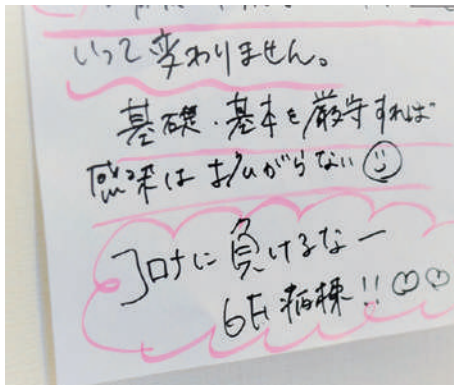 いって変わりません。
基礎・基本を厳守すれば
感染は拡がらない
コロナに負けるなー
6F病棟!!